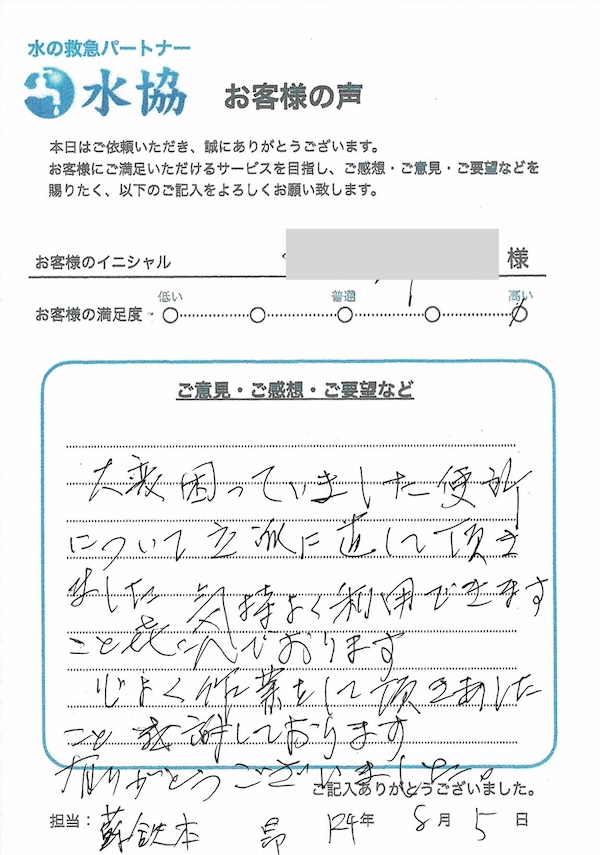 水の救急パートナー
水協 お客様の声
本日はご依頼いただき、誠にありがとうございます。
お客様にご満足いただけるサービスを目指し、ご感想・ご意見・ご要望などを
賜りたく、以下のご記入をよろしくお願い致します。
お客様のイニシャル 様
低い 普通 高い
お客様の満足度
ご意見・ご感想・ご要望など
大変困っていました便所
について立派に直して頂き
ました 気持よく利用できます
こと喜んでおります
心よく作業をして頂きました
こと感謝しております
ありがとうございました。
ご記入ありがとうございました。
担当: R4年 8月 5日